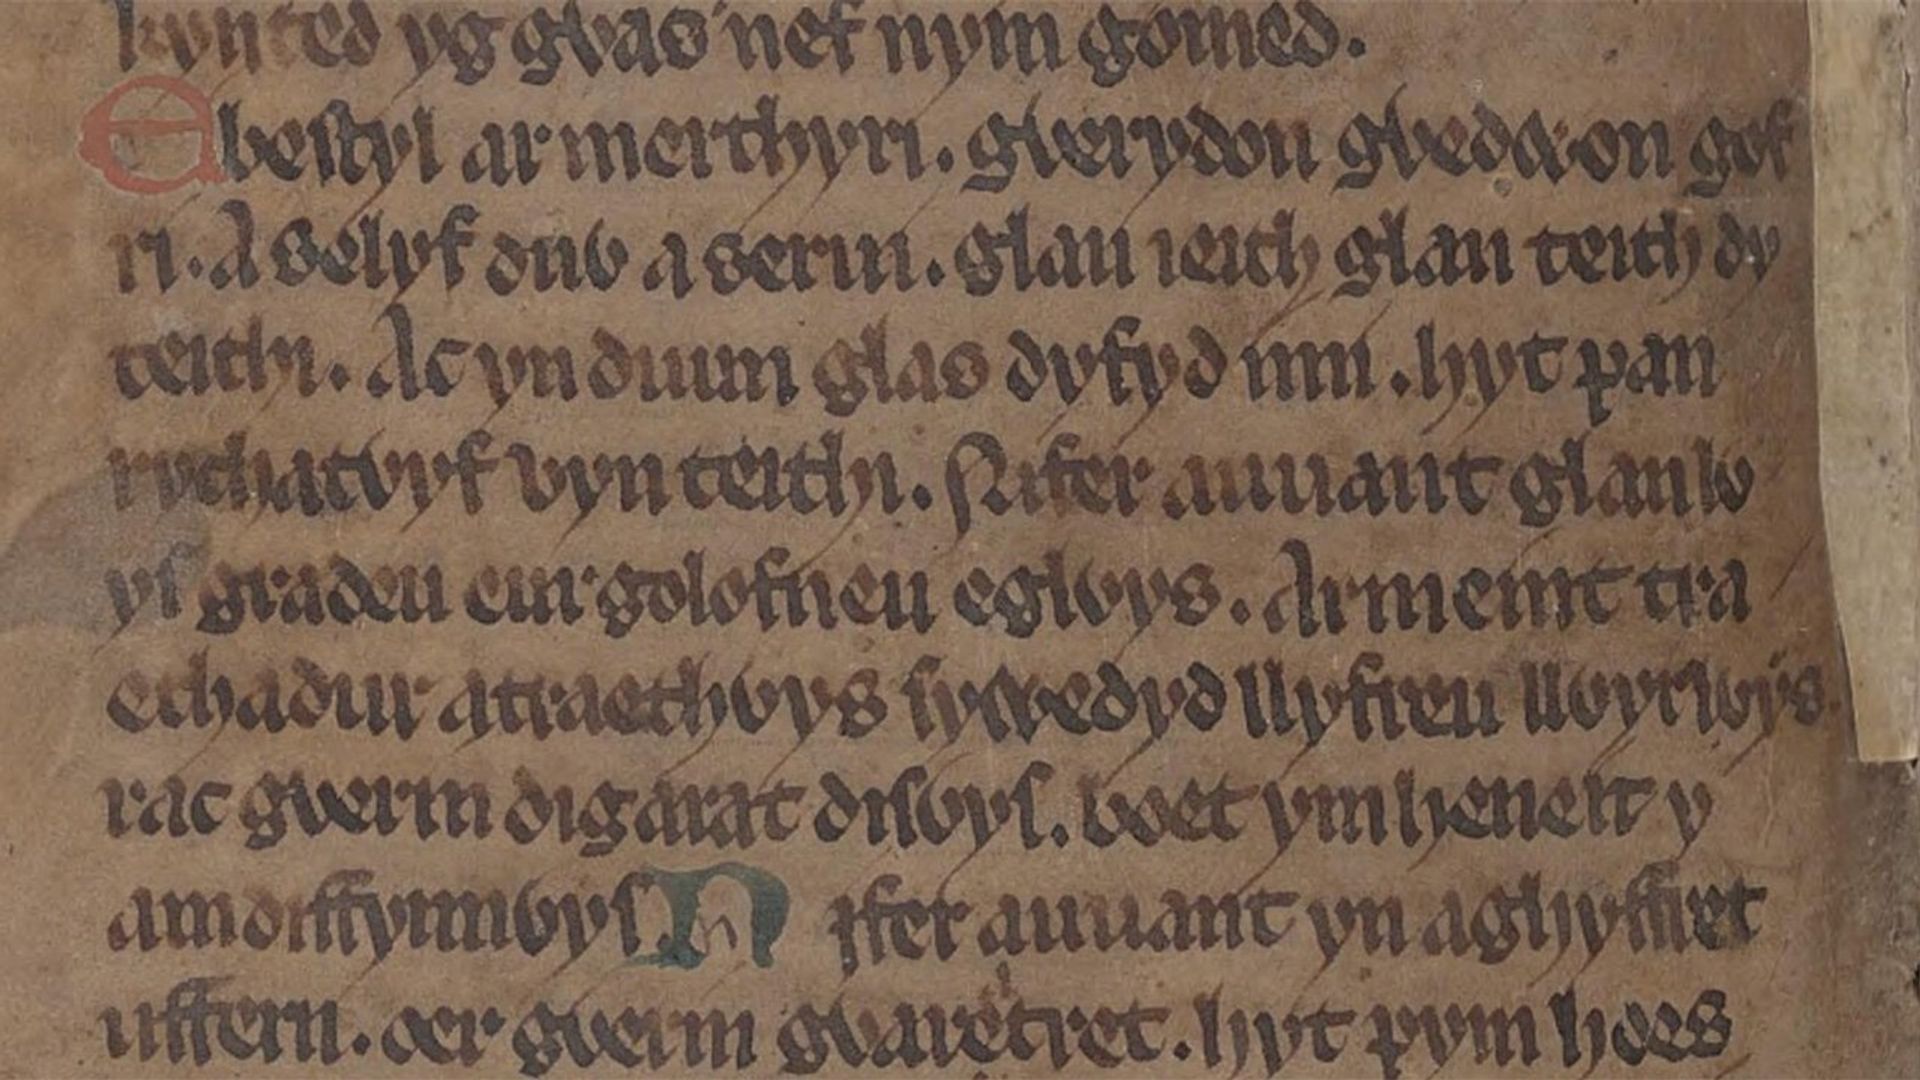 kynted yg gỽas nef nym gomed.
Ebestyl ar merthyri. gỽerydon gỽedỽon gof
ri. A selyf duỽ a serui. glan ieith glan teith dy
teithi. Ac yn duun glas dyfyd imi. hyt pan
rychatỽyf vyn teithi. Nifer auuant glanlỽ
ys gradeu eur golofneu eglỽys. Armeint tra
echadur atraethỽys syỽedyd llyfreu llỽyrlỽys.
rac gỽerin digarat disỽys. boet ym heneit y
amdiffynnỽys Nifer auuant yn aghyffret
uffern. oer gỽerin gỽaretret. hyt pym hoes